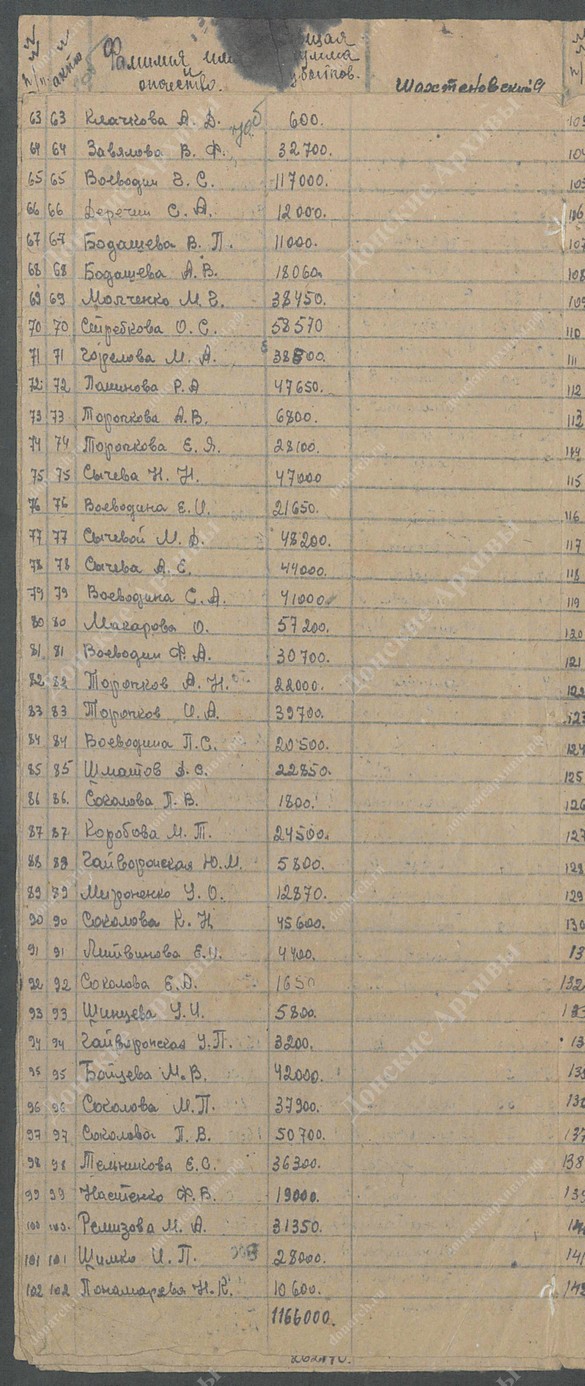 № п/п № акта Фамилия имя отчество. общая сумма убытков. Шахтеновский
63 63 Клачкова А. Д. 600. 103
64 64 Завялова В. Ф. 32700. 104
65 65 Воеводин З. С. 117000. 105
66 66 Деречин С. А. 12000. 106
67 67 Бодашева В. П. 11000. 107
68 68 Бодашева А. В. 18060. 108
69 69 Молченко М. Е. 38450. 109
70 70 Стребкова О. С. 58570 110
71 71 Горелова М. А. 111
72 72 Паминова Р. А 47650. 112
73 73 Торопкова А. В. 6800. 113
74 74 Торопкова Е. Я. 28100. 114
75 75 Сычева Н. Н. 47000 115
76 76 Воеводина Е. И. 21650. 116
77 77 Сычевой М. Ф. 48200. 117
78 78 Сычева А. Е. 44000. 118
79 79 Воеводина С. А. 41000. 119
80 80 Макарова О. 57200. 120
81 81 Воеводин Ф. А. 30700. 121
82 82 Торопков А. Н. 22000. 122
83 83 Торопков И. А. 39700. 123
84 84 Воеводина П. С. 20500. 124
85 85 Шматов 22850. 125
86 86. Соколова П. В. 1800. 126
87 87. Коробова М. Т. 24500. 127
88 88 Гайворонская Ю. М. 5800. 128
89 89 Мироненко У. О. 12870. 129
90 90 Соколова К. Н 45600. 130
91 91 Литвинова Е. И. 4400. 13
92 92 Соколова Е. Д. 1650 132
93 93 Шинцева У. И. 5800. 133
94 94 Гайворонская У. П. 3200. 13
95 95 Бойцева М. В. 42000. 13
96 96 Соколова М. П. 37900. 13
97 97 Соколова П. В. 50700. 137
98 98 Тельникова Е. С. 36300. 138
99 99 Настенко Ф. В. 19000. 139
100 100. Ремизова М. А. 31350. 14
101 101 Шимко И. П. 28000. 141
102 102 Пономарева Н. К. 10600. 142
1166000.